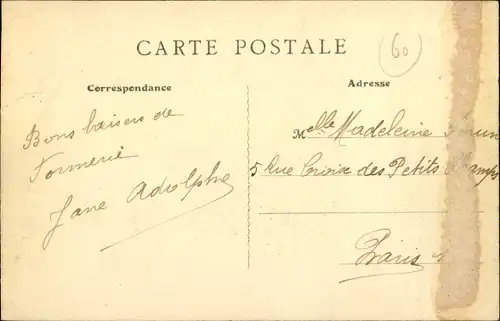 CARTE POSTALE
60
Correspondance
Adresse
Bons baisers de
Formerie
Jane Adolphe
Melle Madeleine
5 Rue Croix des Petits Champs
Paris